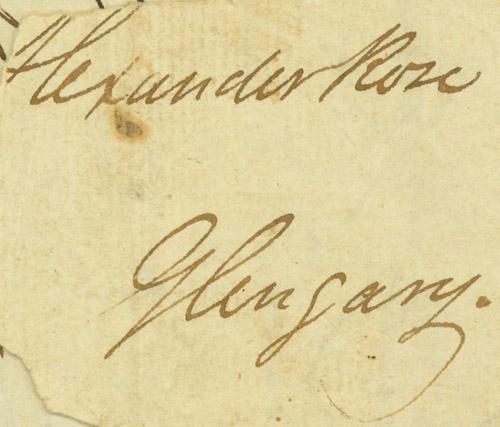 Alexander Rose
Glengary.